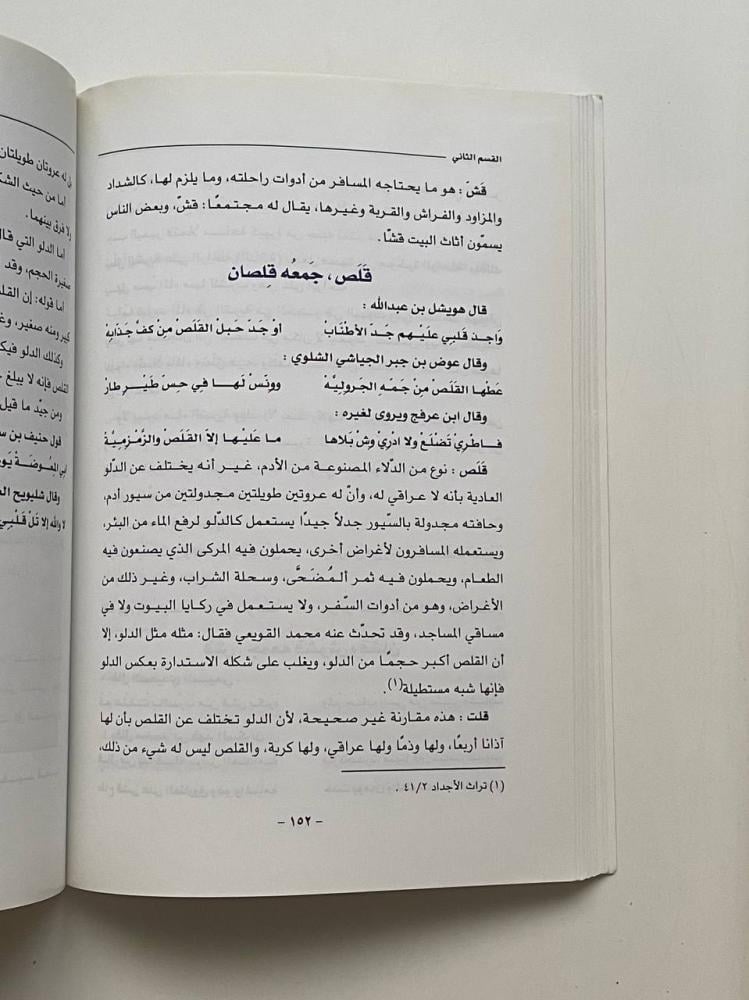 القسم الثاني
قشّ : هو ما يحتاجه المسافر من أدوات راحلته، وما يلزم لها، كالشداد
والمزاود والفراش والقربة وغيرها، يقال له مجتمعًا: قشّ، وبعض الناس
يسمّون أثاث البيت قشًّا.
قَلَص ، جَمعُه قِلصان
قال هويشل بن عبدالله :
وَاجدَ قَلبي علَيْهم جَدّ الأطْنَابْ أوْ جَدّ حَبلَ القَلَص مِنْ كفّ جَذّابِهْ
وقال عوض بن جبر الجياشي الشلوي :
عَطها القَلَصْ مِنْ جَمّهِ الجَرولِيَّهْ وونَسْ لَهَا فِي حِسّ طَيْرٍ طارْ
وقال ابن عرفج ويروى لغيره :
فَاطْرِيْ تَضْلَعْ ولا ادْرِيْ وِشْ بَلاها ما عَليْها إلاّ القَلَصْ والزّمْزِميّهْ
قَلَص : نوع من الدّلاء المصنوعة من الأدم، غير أنه يختلف عن الدّلو
العادية بأنه لا عراقي له، وأنّ له عروتين طويلتين مجدولتين من سيور أدم،
وحافته مجدولة بالسّيور جدلاً جيدًا يستعمل كالدّلو لرفع الماء من البئر،
ويستعمله المسافرون لأغراض أخرى، يحملون فيه المركى الذي يصنعون فيه
الطعام، ويحملون فيه ثمر ألمُضَحَّى، وسحلة الشراب، وغير ذلك من
الأغراض، وهو من أدوات السّفر، ولا يستعمل في ركايا البيوت ولا في
مساقي المساجد، وقد تحدّث عنه محمد القويعي فقال: مثله مثل الدلو، إلا
أن القلص أكبر حجمًا من الدلو، ويغلب على شكله الاستدارة بعكس الدلو
فإنها شبه مستطيلة(١).
قلت : هذه مقارنة غير صحيحة، لأن الدلو تختلف عن القلص بأن لها
آذانا أربعًا، ولها وذمًا ولها عراقي، ولها كربة، والقلص ليس له شيء من ذلك،
(١) تراث الأجداد ٤١/٢ .
- ١٥٢ -
له عروتان طويلتان
أما من حيث الشك
ولا فرق بينهما.
أما الدلو التي قال
صغيرة الحجم، وقد
أما قوله: إن القلـ
كبير ومنه صغير، وغـ
وكذلك الدلو فيكـ
القلص فإنه لا يبلغ
ومن جيّد ما قيل
قول حنيف بن سـ
وقال شليويح العـ
لا والله إلا تَلّ قَلْبِي